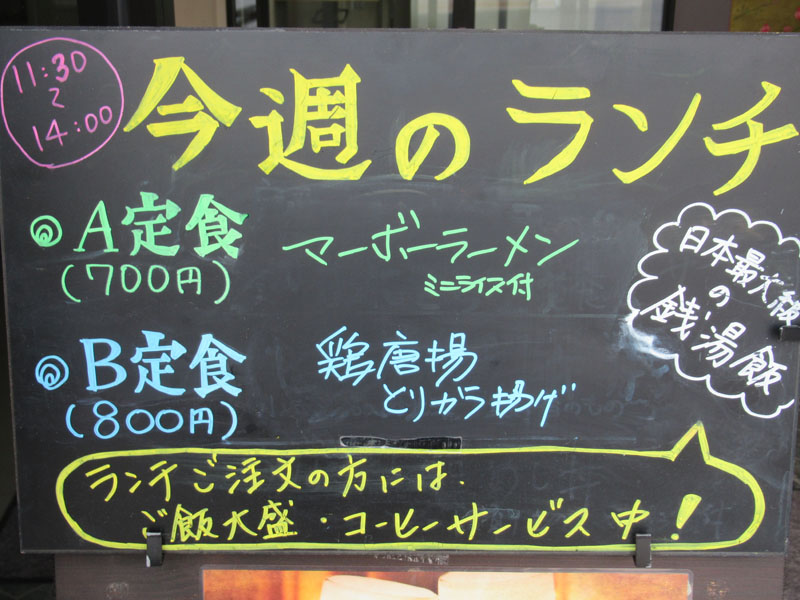 11:30
～
14:00
今週のランチ
◎A定食
(700円)
マーボーラーメン
ミニライス付
◎B定食
(800円)
鶏唐揚
とりから揚げ
日本最大級
の
銭湯飯
ランチご注文の方には、
ご飯大盛・コーヒーサービス中!